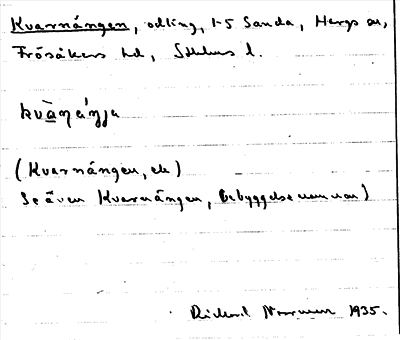 Kvarnängen, odling, 1-5 Sanda, Hargs sn,
Frösåkers hd, Sthlms l.
kvàṇáŋja
(Kvarnängen, ek)
Se även Kvarnängen, Bebyggelsenamn)
Rickard 1935.